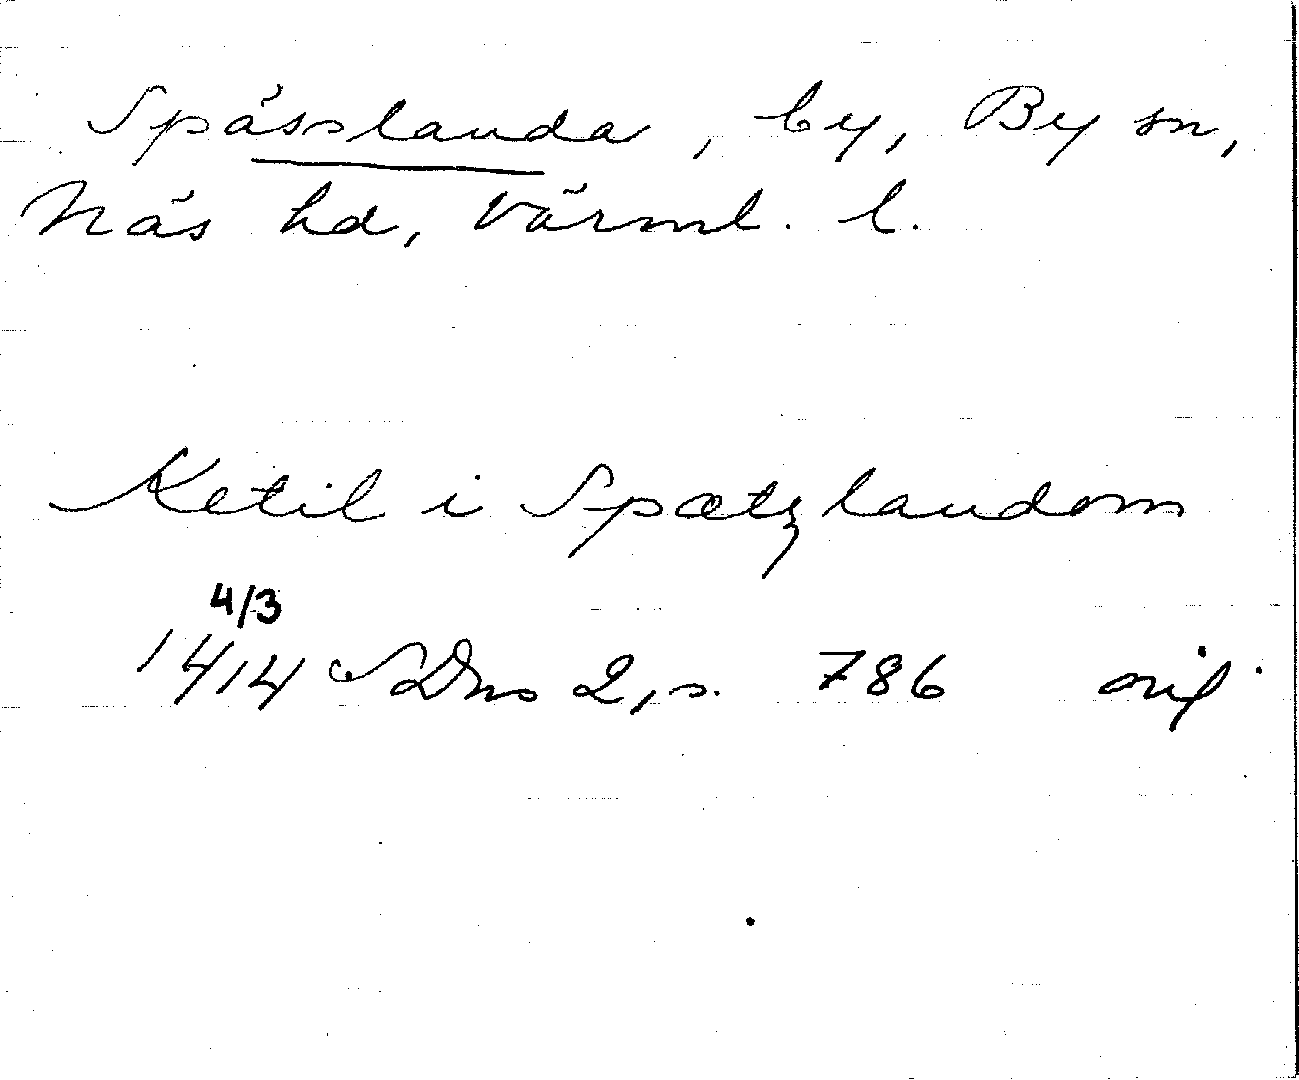 Spässlanda, by, By sn,
Näs hd, Värml. l.
Ketil i Spætzlandom
4/3
1414 SDns 2, s. 786 orig.